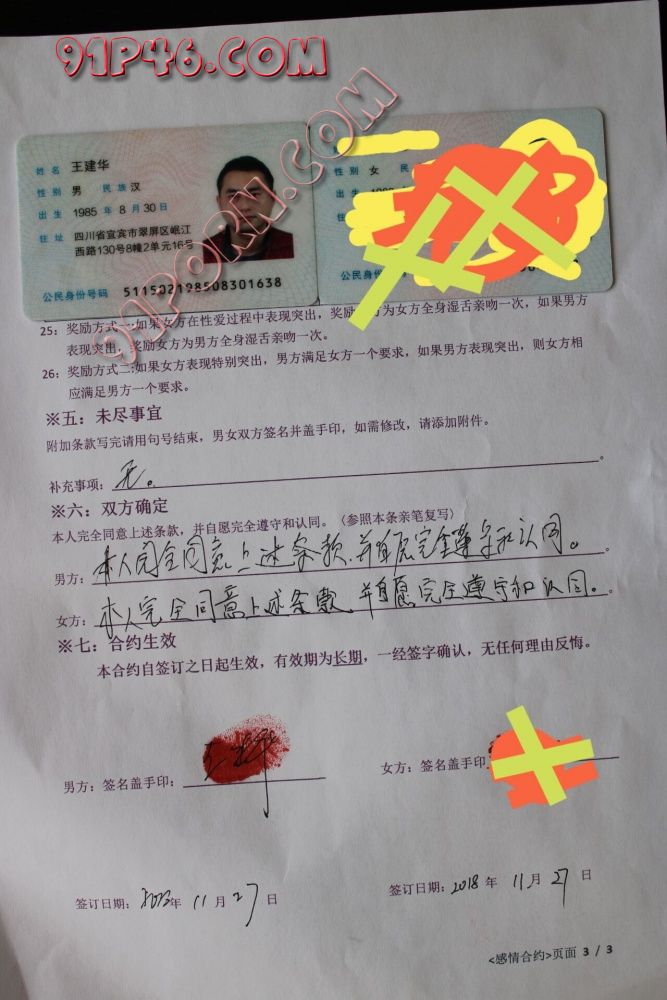 91P46.COM
91PORN.COM
姓名
性别 男 民族 汉
出生
住址
公民身份号码
性别 女
25：奖励方式一:如果女方在性爱过程中表现突出，奖励男方为女方全身湿舌亲吻一次，如果男方
表现突出，奖励女方为男方全身湿舌亲吻一次。
26：奖励方式二:如果女方表现特别突出，男方满足女方一个要求，如果男方表现突出，则女方相
应满足男方一个要求。
※五：未尽事宜
附加条款写完请用句号结束，男女双方签名并盖手印，如需修改，请添加附件。
补充事项：无。
※六：双方确定
本人完全同意上述条款，并自愿完全遵守和认同。（参照本条亲笔复写）
男方：本人完全同意上述条款，并自愿完全遵守和认同。
女方：本人完全同意上述条款，并自愿完全遵守和认同。
※七：合约生效
本合约自签订之日起生效，有效期为长期，一经签字确认，无任何理由反悔。
男方：签名盖手印：
女方：签名盖手印
签订日期： 年 11 月 27 日
签订日期：2018 年 11 月 27 日
<感情合约>页面 3 / 3